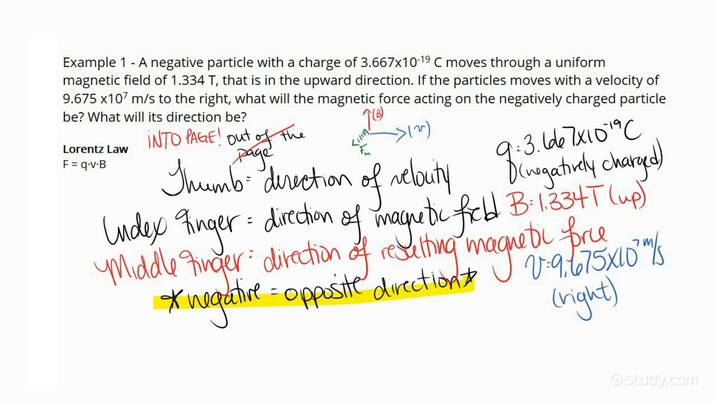 Example 1 - A negative particle with a charge of 3.667x10⁻¹⁹ C moves through a uniform
magnetic field of 1.334 T, that is in the upward direction. If the particles moves with a velocity of
9.675 x10⁷ m/s to the right, what will the magnetic force acting on the negatively charged particle
be? What will its direction be?
Lorentz Law
F = q·v·B
INTO PAGE! out of the
page
↑(B)
→(v)
Fm
Thumb = direction of velocity
Index finger = direction of magnetic field
Middle finger = direction of resulting magnetic force
*negative = opposite direction*
q: 3.667x10⁻¹⁹C
(negatively charged)
B: 1.334T (up)
v: 9.675x10⁷ m/s
(right)
Study.com